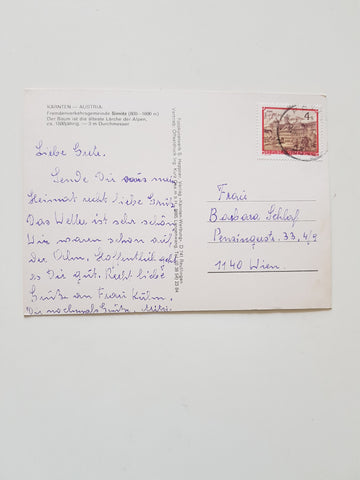 KÄRNTEN — AUSTRIA
Fremdenverkehrsgemeinde Sirnitz (800—1800 m)
Der Baum ist die älteste Lärche der Alpen,
ca. 1300jährig, — 3 m Durchmesser
Liebe Grete.
Sende Dir aus mein
Heimat recht liebe Grüß
Das Wetter ist sehr schön
Wir waren schon auf
der Alm. Hoffentlich geh
es Dir gut. Recht liebe
Grüße an Frau Kühn.
Dir nochmals Grüße,
4
Frau
Barbara Schlaf
Penzingerstr. 33, 4/9
1140 Wien.